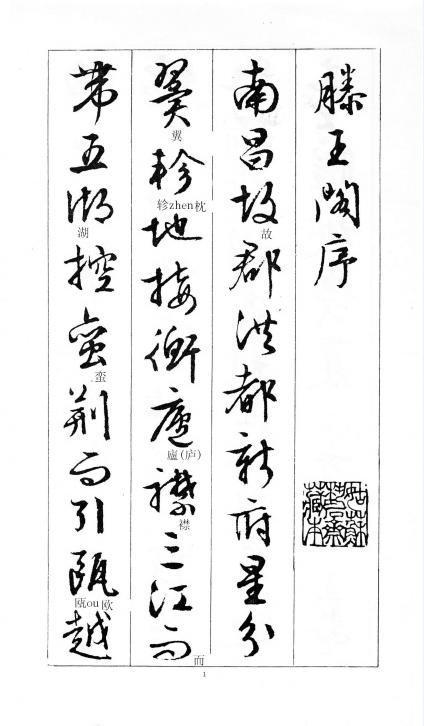 滕王閣序
南昌故郡洪都新府星分
故
翼軫地接衡廬襟三江而
翼
轸zhen枕
廬(庐)
襟
而
帶五湖控蠻荊而引甌越
湖
蛮
瓯ou欧
1